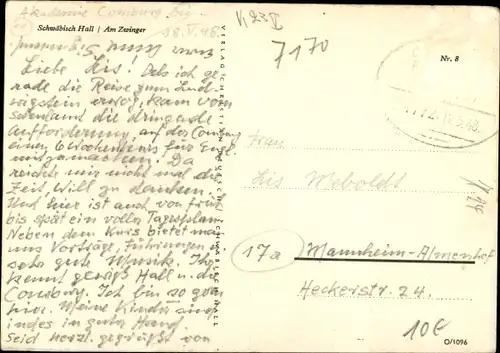 Akademie Comburg
18.V.48.
Schwäbisch Hall | Am Zwinger
Liebe Lis! Als ich ge-
rade die Reise zum Lud-
wigstein erwog, kam von
die dringende
Aufforderung, auf der Comburg
einen 6 Wochenkurs für Engl.
mitzumachen. Da
reichte mir nicht mal die
Zeit, Will zu danken.
Und hier ist auch von früh
bis spät ein voller Tagesplan.
Neben dem Kurs bietet man
uns Vorträge, Führungen,
sehr gute Musik. Ihr
kennt gewiß Hall u. die
Comburg. Ich bin so gern
hier. Meine Kinder sind
indes in guter Hand.
Seid herzl. gegrüßt von
7170
Nr. 8
Frau
Lis Meboldt
17a
Mannheim-Almenhof
Heckerstr. 24.
10€
O/1096